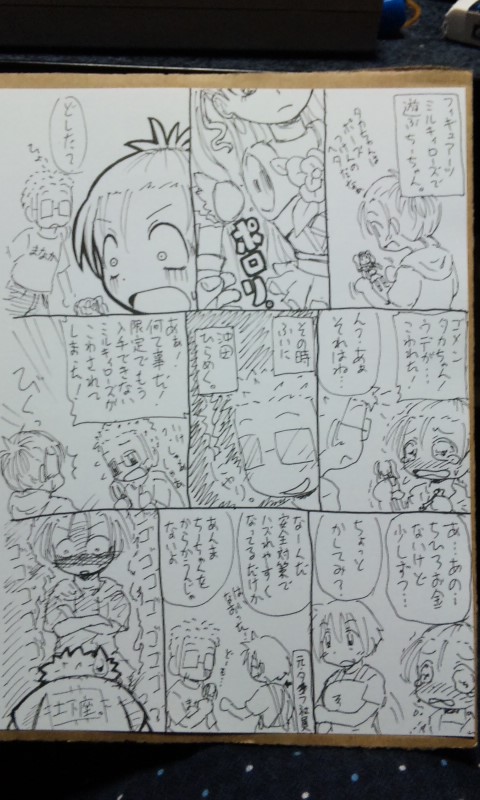 フィギュアーツ
ミルキィローズで
遊ぶちーちゃん。
タカちゃんは
ポーズ
ポロリ。
どした?
ひょこ
まなか
ゴメン
タカちゃん
ウデが…
こわれた!
ん?…あぁ
それはね…
その時
ふいに
沖田
ひらめく。
あぁ!
何て事だ!
限定でもう
入手できない
ミルキィローズが
こわされて
しまった!
びくっ
あ…あの…
ちひろお金
ないけど
少しずつ…
ちょっと
かしてみて?
元タカラ社員
なーんだ
安全対策で
ハズれやすく
なってるだけか
あんま
ちーちゃんを
からかうんじゃ
ないよ
はい…
どーも…
ゴゴゴゴゴ
土下座